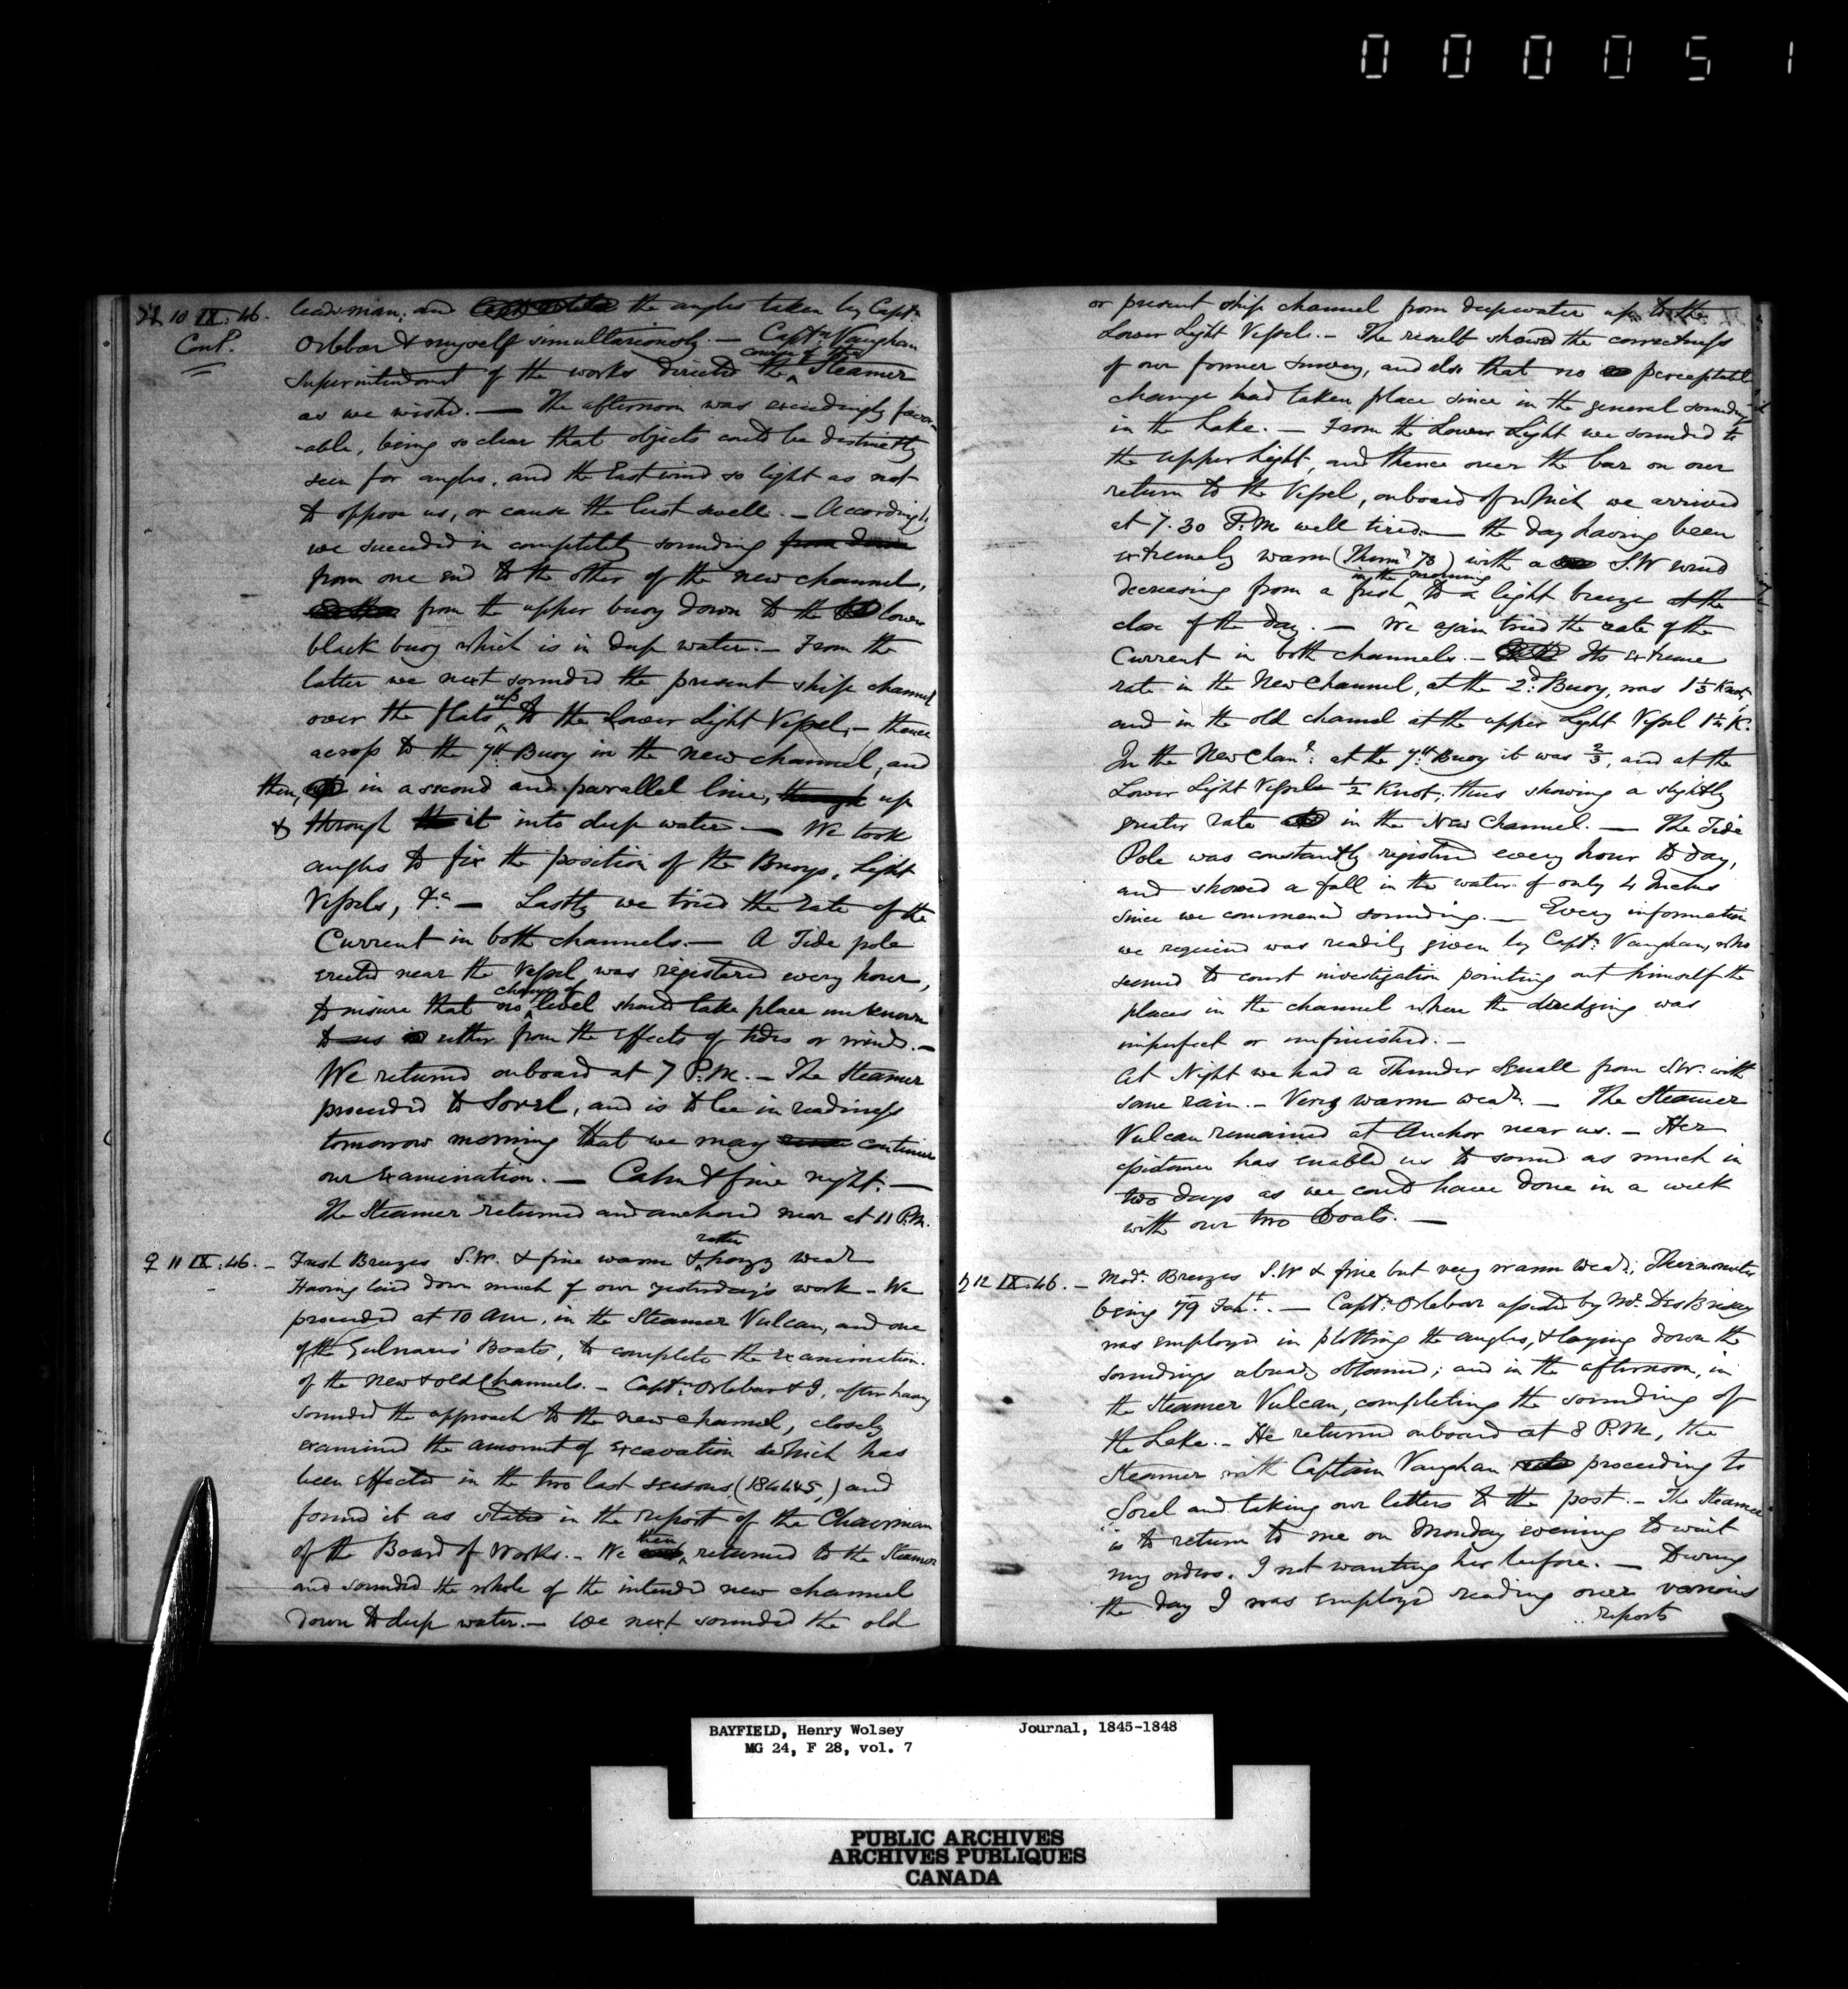 000051
♃ 10 IX. 46. leadsman, and the angles taken by Captn
Cont. Orlebar & myself simultaneously. — Captn Vaughan
Superintendent of the works directed the course of the Steamer
as we wished. — The afternoon was exceedingly favor
-able, being so clear that objects could be distinctly
seen for angles, and the East wind so light as not
to oppose us, or cause the least swell. — Accordingly
we succeeded in completely sounding from down
from one end to the other of the new channel,
from the upper buoy down to the lower
black buoy which is in deep water. — From the
latter we next sounded the present ship channel
over the flats up to the Lower Light Vessel, — thence
across to the 7th Buoy in the new channel, and
then, in a second and parallel line, through up
& through the it into deep water — We took
angles to fix the position of the Buoys, Light
Vessels, &c — Lastly we tried the rate of the
Current in both channels. — A Tide pole
erected near the Vessel, was registered every hour,
to insure that no change of level should take place unknown
to us either from the effects of tides or winds. —
We returned onboard at 7 P.M. — The Steamer
proceeded to Sorel, and is to be in readiness
tomorrow morning that we may continue
our examination. — Calm & fine night. —
The Steamer returned and anchored near at 11 P.M.
♀ 11 IX. 46. — Fresh Breezes S.W. & fine warm & rather hazy wear
Having laid down much of our yesterday's work — We
proceeded at 10 AM, in the Steamer Vulcan, and one
of the Gulnare's Boats, to complete the examination.
of the new & old Channels. — Captn Orlebar & I, after having
sounded the approach to the new channel, closely
examined the amount of excavation which has
been effected in the two last seasons, (1844 45,) and
found it as stated in the report of the Chairman
of the Board of Works. — We then returned to the Steamer
and sounded the whole of the intended new channel
down to deep water. — We next sounded the old
or present ship channel from deep water up to the
Lower Light Vessel. — The result showed the correctness
of our former survey, and also that no perceptible
change had taken place since in the general soundings
in the Lake. — From the Lower Light we sounded to
the upper Light, and thence over the bar on our
return to the Vessel, onboard of which we arrived
at 7.30 P.M well tired — the day having been
extremely warm (Thermr 78) with a S.W wind
decreasing from a fresh in the morning to a light breeze at the
close of the day. — We again tried the rate of the
Current in both channels. — Its extreme
rate in the New Channel, at the 2d Buoy, was 1⅓ Knot,
and in the old channel at the upper Light Vessel 1¼ K.
In the New Chanl: at the 7th Buoy it was ⅔, and at the
Lower Light Vessel ½ Knot; thus showing a slightly
greater rate in the New Channel. — The Tide
Pole was constantly registered every hour to day,
and showed a fall in the water of only 4 Inches
since we commenced sounding. — Every information
we required was readily given by Captn Vaughan, who
seemed to court investigation pointing out himself the
places in the channel where the dredging was
imperfect or unfinished. —
At Night we had a Thunder Squall from S.W. with
some rain. — Very warm wear. — The Steamer
Vulcan remained at Anchor near us. — Her
assistance has enabled us to sound as much in
two days as we could have done in a week
with our two Boats. —
♄ 12 IX. 46. — Modr Breezes S.W & fine but very warm wear; Thermometer
being 79 Faht. — Captn Orlebar assisted by Mr DesBrisay
was employed in plotting the angles, & laying down the
soundings already obtained; and in the afternoon, in
the Steamer Vulcan, completing the sounding of
the Lake. — He returned onboard at 8 P.M, the
Steamer with Captain Vaughan proceeding to
Sorel and taking our letters to the post. — The Steamer
is to return to me on Monday evening to wait
my orders. I not wanting her before. — During
the day I was employed reading over various
reports
BAYFIELD, Henry Wolsey Journal, 1845-1848
MG 24, F 28, vol. 7
PUBLIC ARCHIVES
ARCHIVES PUBLIQUES
CANADA